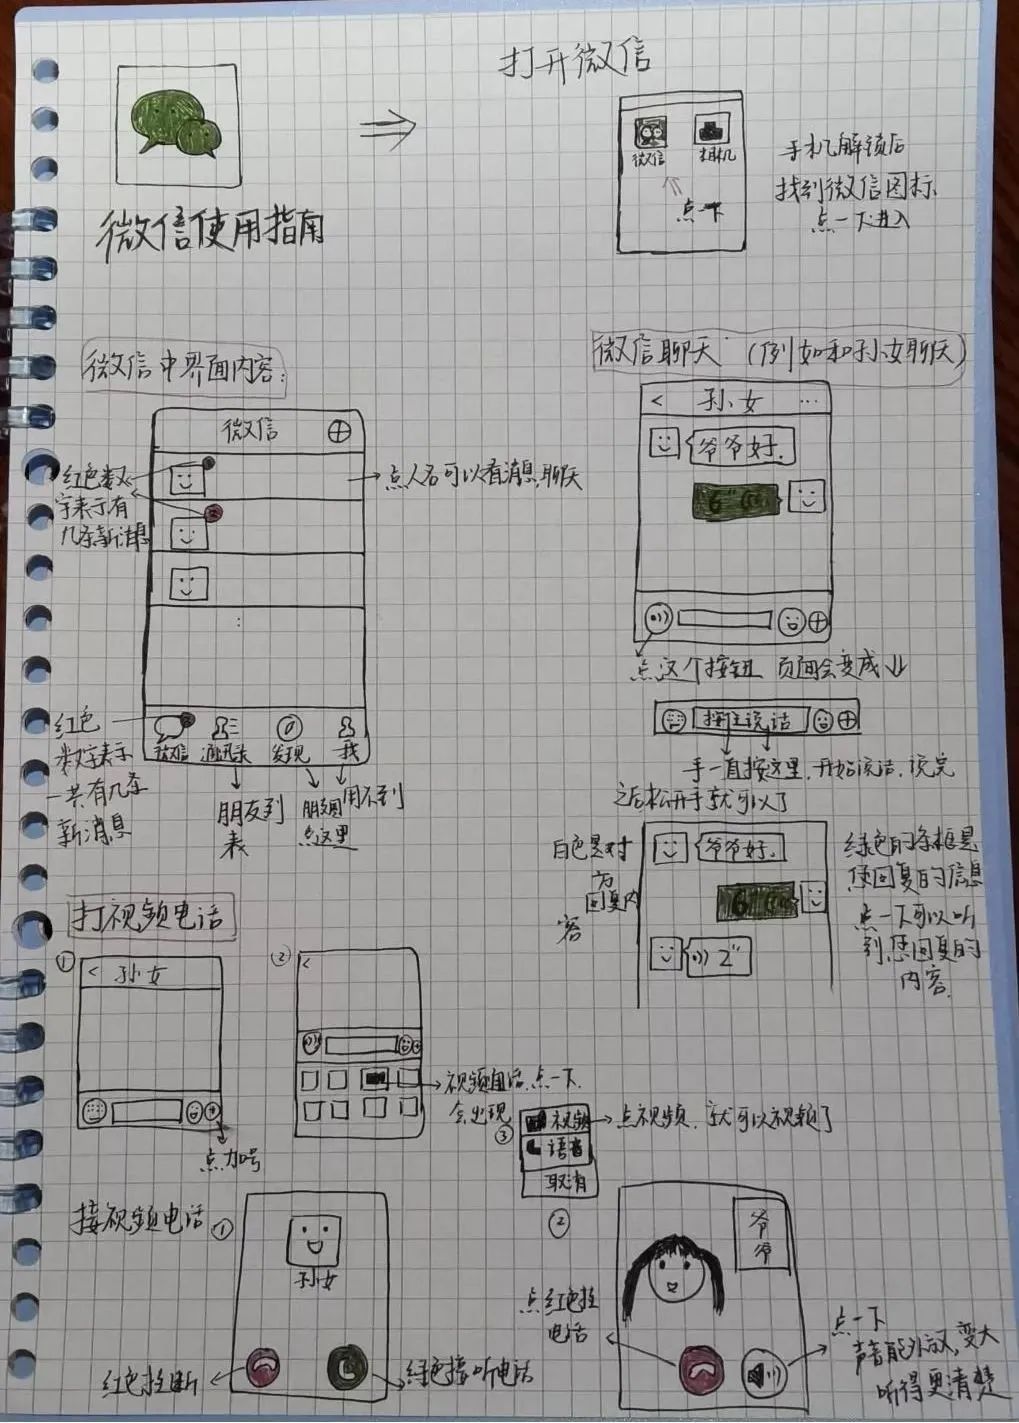 打开微信
微信使用指南
微信
相机
点一下
手机解锁后
找到微信图标
点一下进入
微信中界面内容：
微信
红色数
字表示有
几条新消息
点人名可以看消息，聊天
微信
通讯录
发现
我
红色
数字表示
一共有几条
新消息
朋友列
表
朋友圈
点这里
用不到
微信聊天（例如和孙女聊天）
< 孙女 ...
爷爷好.
6"
点这个按钮 页面会变成
按住说话
手一直按这里，开始说话，说完
之后松开手就可以了
白色是对
方
回复内
容
爷爷好.
6"
2"
绿色的条框是
您回复的信息
点一下可以听
到您回复的
内容.
打视频电话
①
< 孙女
点加号
②
<
视频电话，点一下，
会出现
③
视频
语音
取消
点视频，就可以视频了
接视频电话 ①
孙女
红色挂断
绿色接听电话
②
爷爷
点红色挂
电话
点一下
声音能外放，变大
听得更清楚